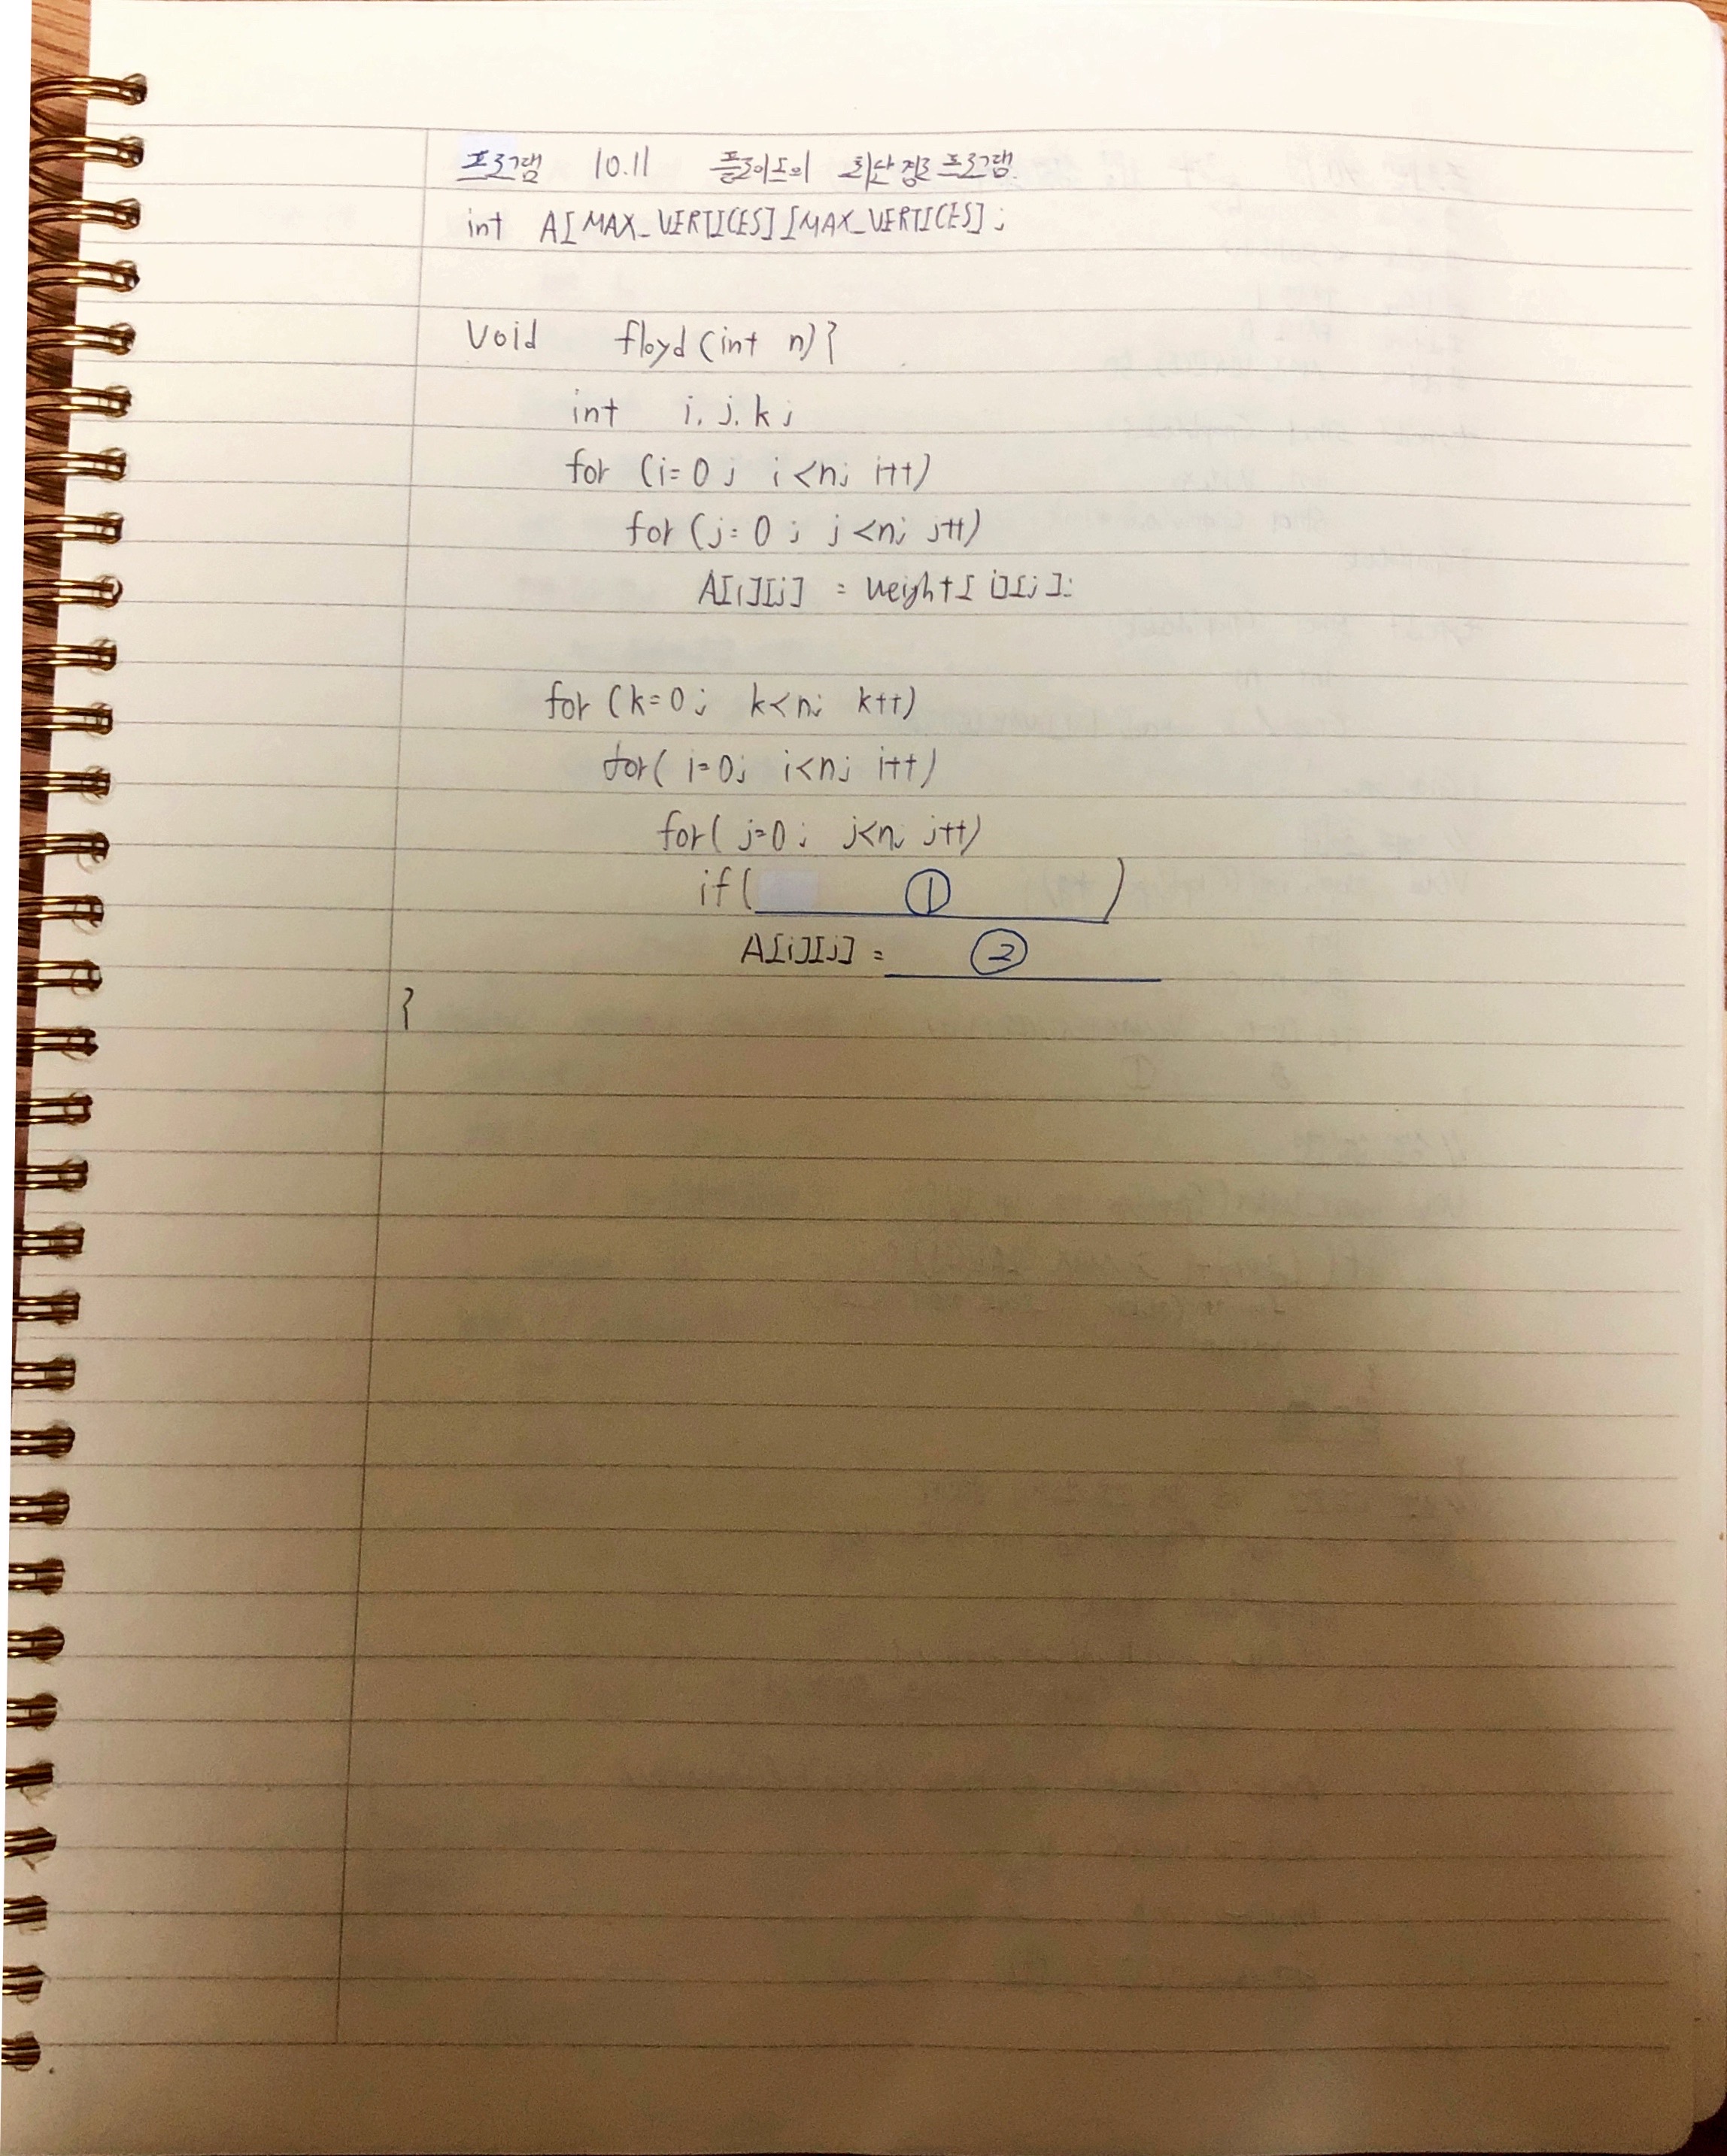 프로그램 10.11 플로이드의 최단 경로 프로그램.
int A[MAX_VERTICES][MAX_VERTICES];
void floyd(int n){
int i, j, k;
for (i=0; i<n; i++)
for (j=0; j<n; j++)
A[i][j] = weight[i][j];
for (k=0; k<n; k++)
for( i=0; i<n; i++)
for( j=0; j<n; j++)
if( ① )
A[i][j] = ②
}